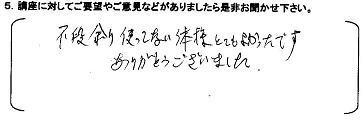 5. 講座に対してご要望やご意見などがありましたら是非お聞かせ下さい。
不段余り使ってない体操とても
ありがとうございました。